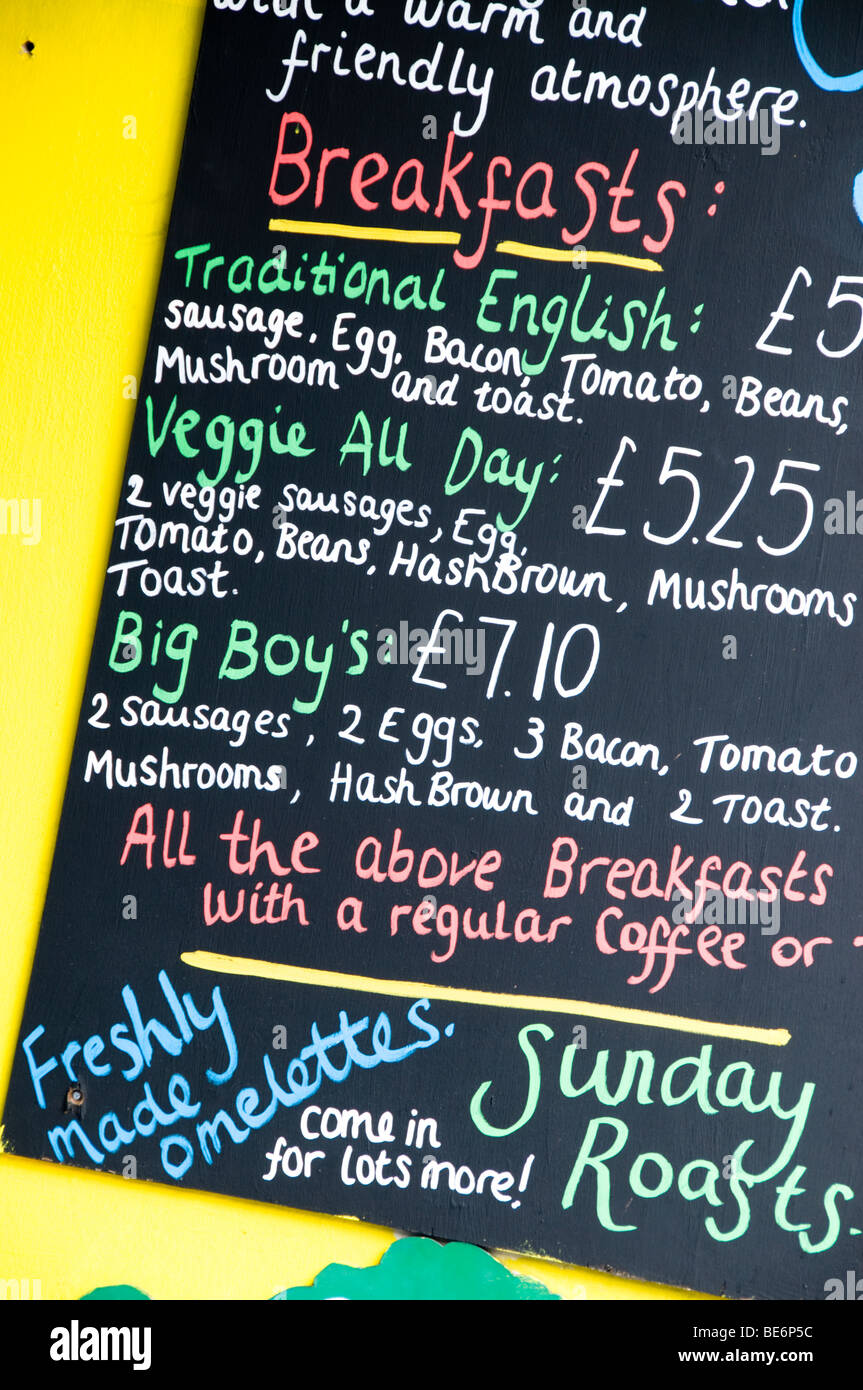 with a warm and
friendly atmosphere.
Breakfasts:
Traditional English: £5
sausage, Egg, Bacon, Tomato, Beans,
Mushroom and toast.
Veggie All Day: £5.25
2 veggie sausages, Egg,
Tomato, Beans, Hash Brown, Mushrooms
Toast.
Big Boy's: £7.10
2 sausages, 2 Eggs, 3 Bacon, Tomato
Mushrooms, Hash Brown and 2 Toast.
All the above Breakfasts
with a regular Coffee or
Freshly
made
omelettes.
come in
for lots more!
Sunday
Roasts.
alamy
Image ID: BE6P5C
www.alamy.com